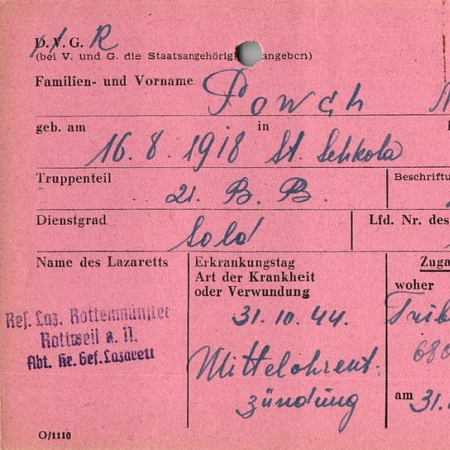 D. V. G. R
(bei V. und G. die Staatsangehörigkeit angeben)
Familien- und Vorname Powch
geb. am 16.8.1918 in St. Schkola
Truppenteil 21. B. B. Beschriftu
Dienstgrad Sold Lfd. Nr. des
Name des Lazaretts
Res. Laz. Rottenmünster
Rottweil a. N.
Abt. Kr. Gef. Lazarett
Erkrankungstag
Art der Krankheit
oder Verwundung
31.10.44.
Mittelohrent-
zündung
Zuga
woher
Trib
680
am 31.
O/1110